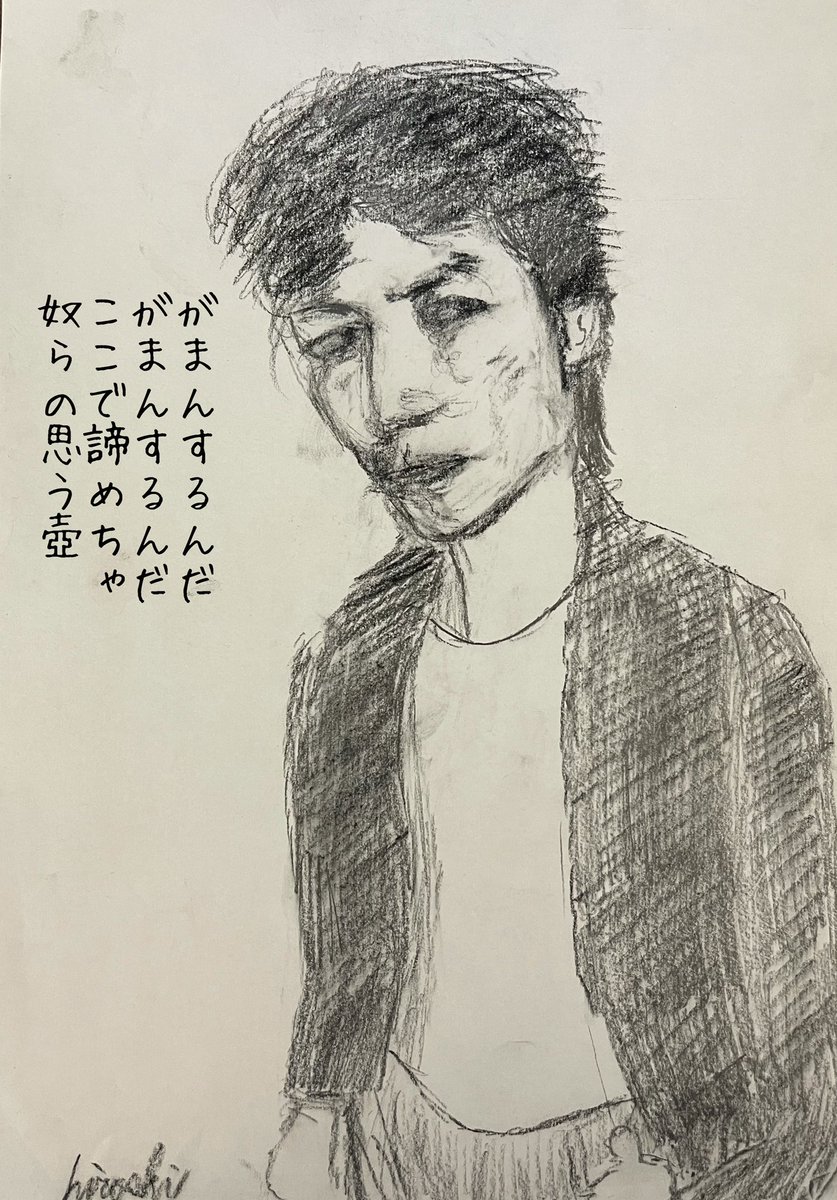 がまんするんだ
がまんするんだ
ここで諦めちゃ
奴らの思う壺
hiroshi